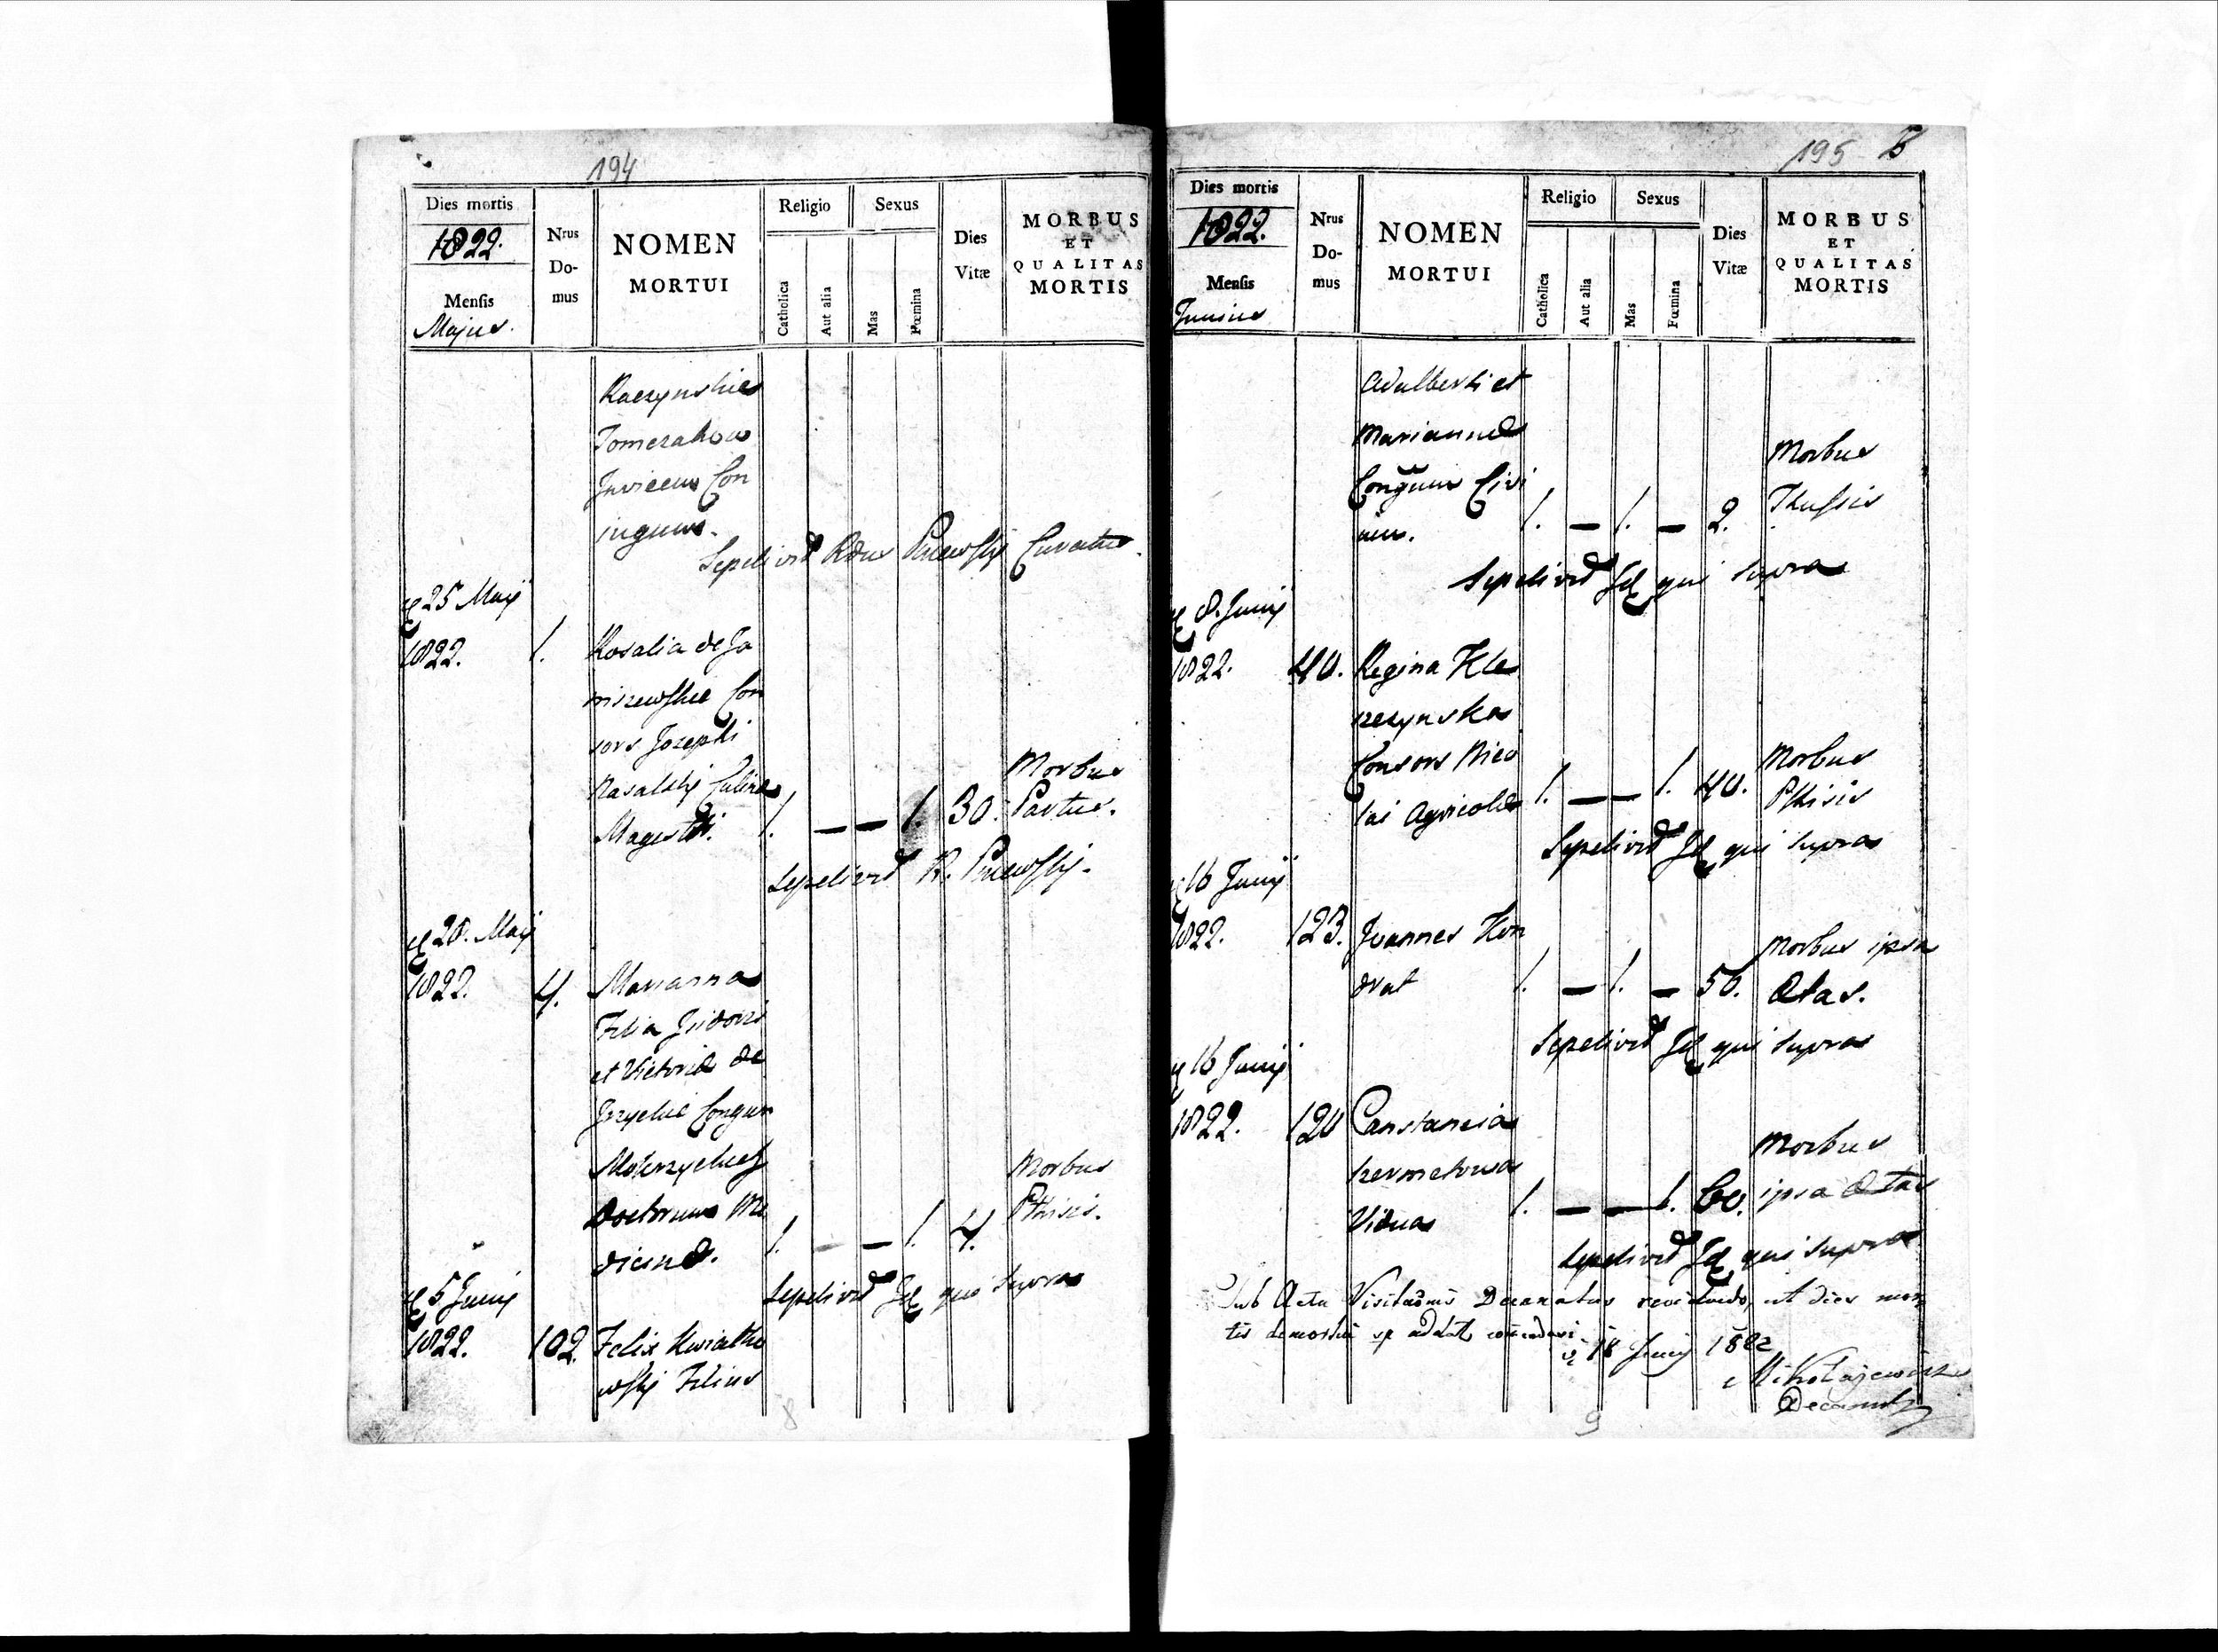 194
Dies mortis
1822.
Mensis
Majus.
Nrus
Do-
mus
NOMEN
MORTUI
Religio
Catholica
Aut alia
Sexus
Mas
Fœmina
Dies
Vitæ
MORBUS
ET
QUALITAS
MORTIS
Raczynskie
Con
jugum.
Sepelivit Rdus Pniewski Curatus.
25 Maij
1822. 1. Rosalia de Ja
niszewskie Con
sors Josephi
Nasalski
Magistri. 1. — — 1. 30. Morbus
Partus.
Sepelivit R. Pniewski.
28. Maij
1822. 4. Marianna
Filia Isidori
et Victoriæ de
Conjugum
Doctorum Me
dicinæ. 1. — — 1. 4. Morbus
Pthisis.
Sepelivit Id qui supra
5 Junij
1822. 102. Felix Kwiatko
wski Filius
8
195
Dies mortis
1822.
Mensis
Junius
Nrus
Do-
mus
NOMEN
MORTUI
Religio
Catholica
Aut alia
Sexus
Mas
Fœmina
Dies
Vitæ
MORBUS
ET
QUALITAS
MORTIS
Adalberti et
Mariannæ
Conjgum Civi
um. 1. — 1. — 2. Morbus
Thussis
Sepelivit Id qui supra
8. Junij
1822. 40. Regina Kle
szczynska
Consors Nico
lai Agricolæ 1. — — 1. 40. Morbus
Pthisis
Sepelivit Id qui supra
16 Junij
1822. 123. Joannes Kon
drat 1. — 1. — 50. Morbus ipsa
Ætas.
Sepelivit Id qui supra
16 Junij
1822. 120 Constancia
Vidua 1. — — 1. 60. Morbus
ipsa Ætas
Sepelivit Id qui supra
Sub Actu Visitaōnis Decanatus revidendo, ut dies mor
tis
18 Junij 1822
Mikołajewicz
9